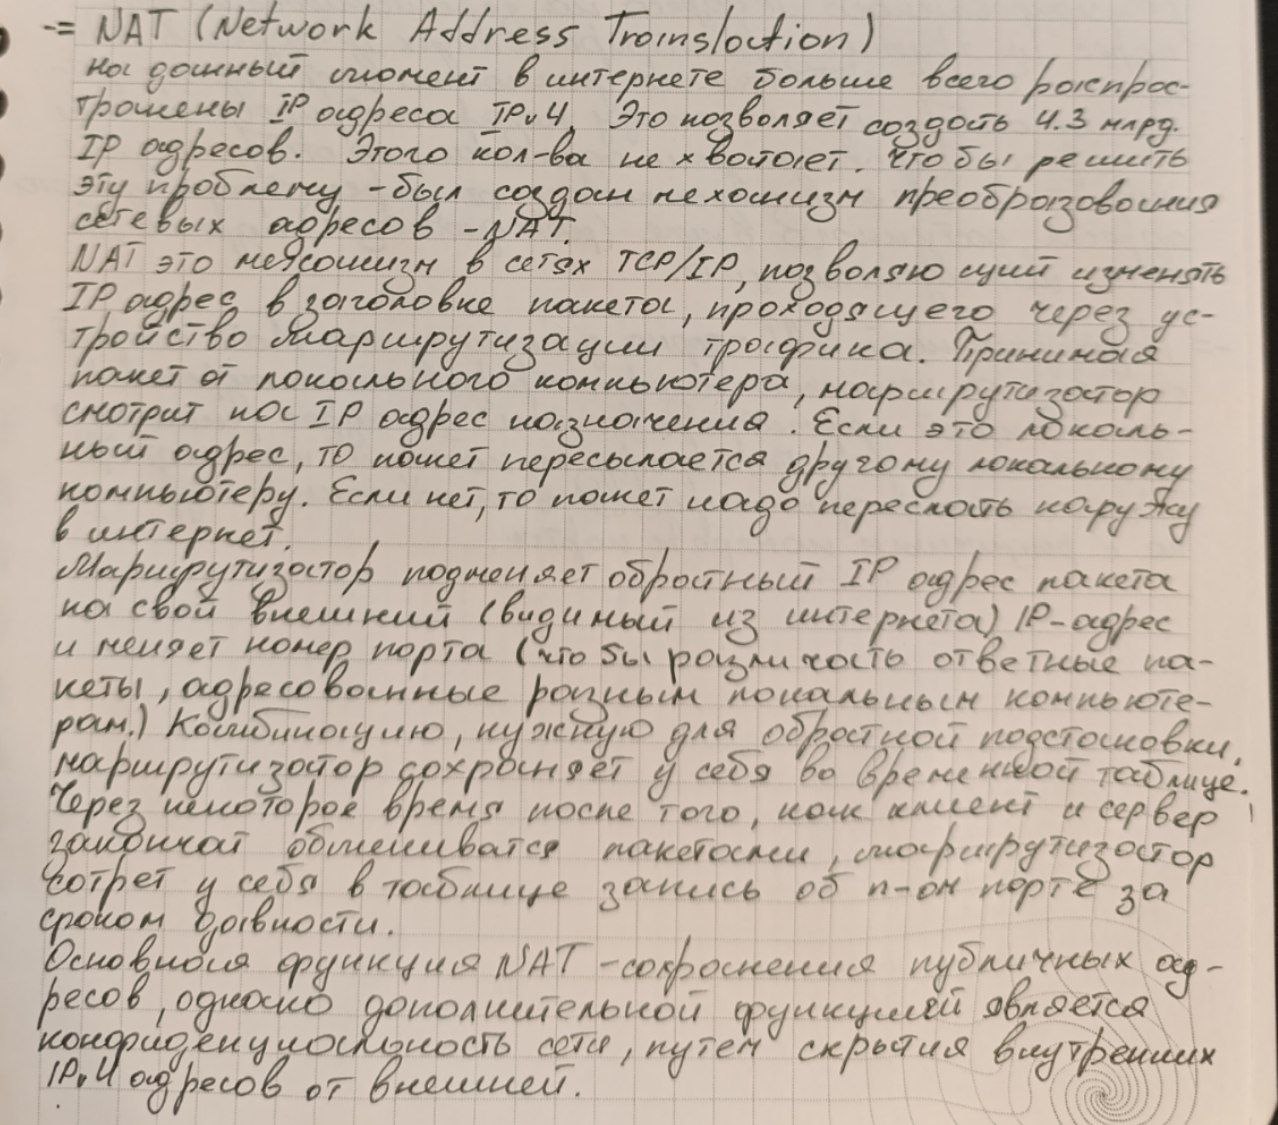 -= NAT (Network Address Translation)
на данный момент в интернете больше всего распрос-
транены IP адреса IPv4. Это позволяет создать 4.3 млрд.
IP адресов. Этого кол-ва не хватает. Чтобы решить
эту проблему - был создан механизм преобразования
сетевых адресов - NAT.
NAT это механизм в сетях TCP/IP, позволяющий изменять
IP адрес в заголовке пакета, проходящего через ус-
тройство маршрутизации трафика. Принимая
пакет от локального компьютера, маршрутизатор
смотрит на IP адрес назначения. Если это локаль-
ный адрес, то пакет пересылается другому локальному
компьютеру. Если нет, то пакет надо переслать наружу
в интернет.
Маршрутизатор подменяет обратный IP адрес пакета
на свой внешний (видимый из интернета) IP-адрес
и меняет номер порта (что бы различать ответные па-
кеты, адресованные разным локальным компьюте-
рам.) Комбинацию, нужную для обратной подстановки,
маршрутизатор сохраняет у себя во временной таблице.
Через некоторое время после того, как клиент и сервер
закончат обмениватся пакетами, маршрутизатор
сотрет у себя в таблице запись об n-ом порте за
сроком давности.
Основная функция NAT - сохранения публичных ад-
ресов, однако дополнительной функцией является
конфиденциальность сети, путем скрытия внутренних
IPv4 адресов от внешней.